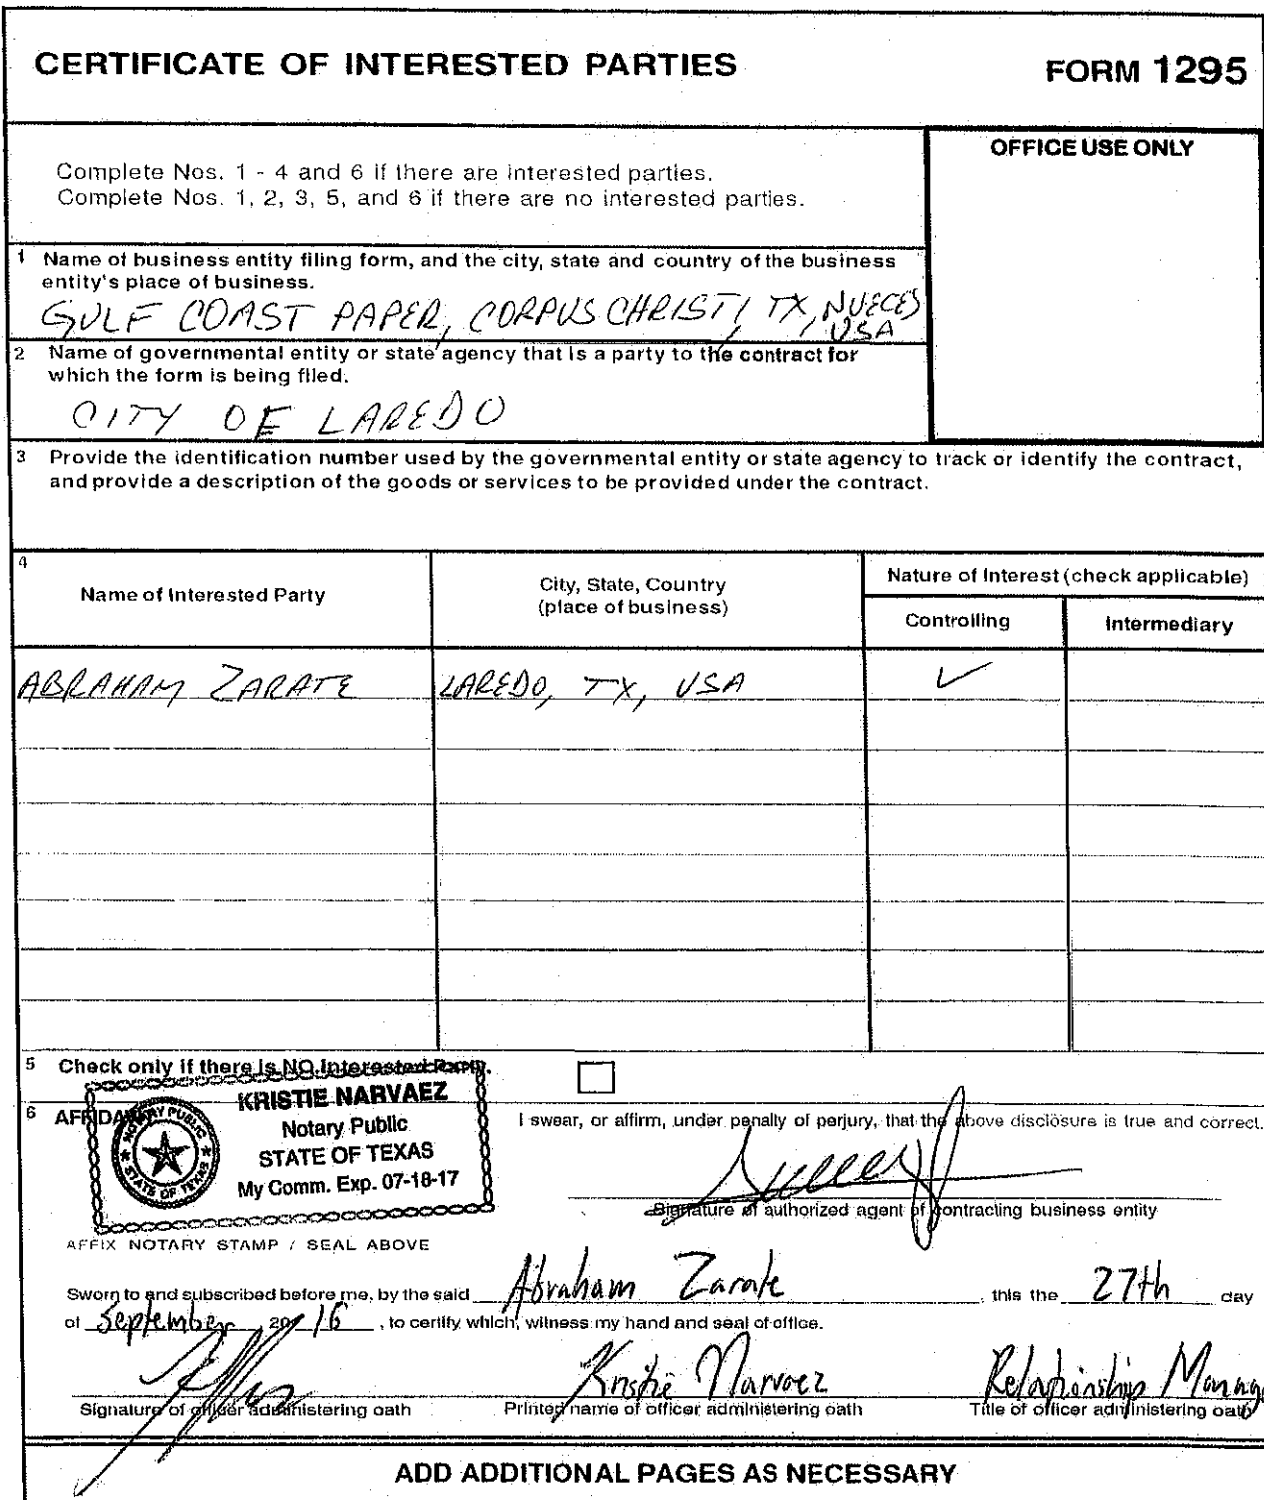 CERTIFICATE OF INTERESTED PARTIES
FORM 1295
Complete Nos. 1 - 4 and 6 if there are interested parties.
Complete Nos. 1, 2, 3, 5, and 6 if there are no interested parties.
OFFICE USE ONLY
1 Name of business entity filing form, and the city, state and country of the business
entity's place of business.
GULF COAST PAPER, CORPUS CHRISTI, TX, NUECES
USA
2 Name of governmental entity or state agency that is a party to the contract for
which the form is being filed.
CITY OF LAREDO
3 Provide the identification number used by the governmental entity or state agency to track or identify the contract,
and provide a description of the goods or services to be provided under the contract.
4
Name of Interested Party
City, State, Country
(place of business)
Nature of Interest (check applicable)
Controlling
Intermediary
ABRAHAM ZARATE
LAREDO, TX, USA
✓
5 Check only if there is NO Interested Party.
6 AFFIDAVIT
KRISTIE NARVAEZ
Notary Public
STATE OF TEXAS
My Comm. Exp. 07-18-17
NOTARY PUBLIC
STATE OF TEXAS
I swear, or affirm, under penalty of perjury, that the above disclosure is true and correct.
Signature of authorized agent of contracting business entity
AFFIX NOTARY STAMP / SEAL ABOVE
Sworn to and subscribed before me, by the said Abraham Zarate, this the 27th day
of September, 20 16, to certify which, witness my hand and seal of office.
Kristie Narvaez
Relationship Manage
Signature of officer administering oath
Printed name of officer administering oath
Title of officer administering oath
ADD ADDITIONAL PAGES AS NECESSARY